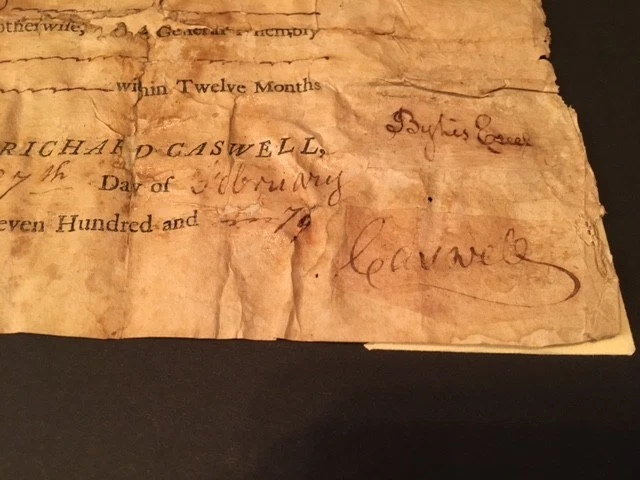 otherwiſe,
within Twelve Months
By his
RICHARD CASWELL,
7th Day of February
even Hundred and 79
Caswell